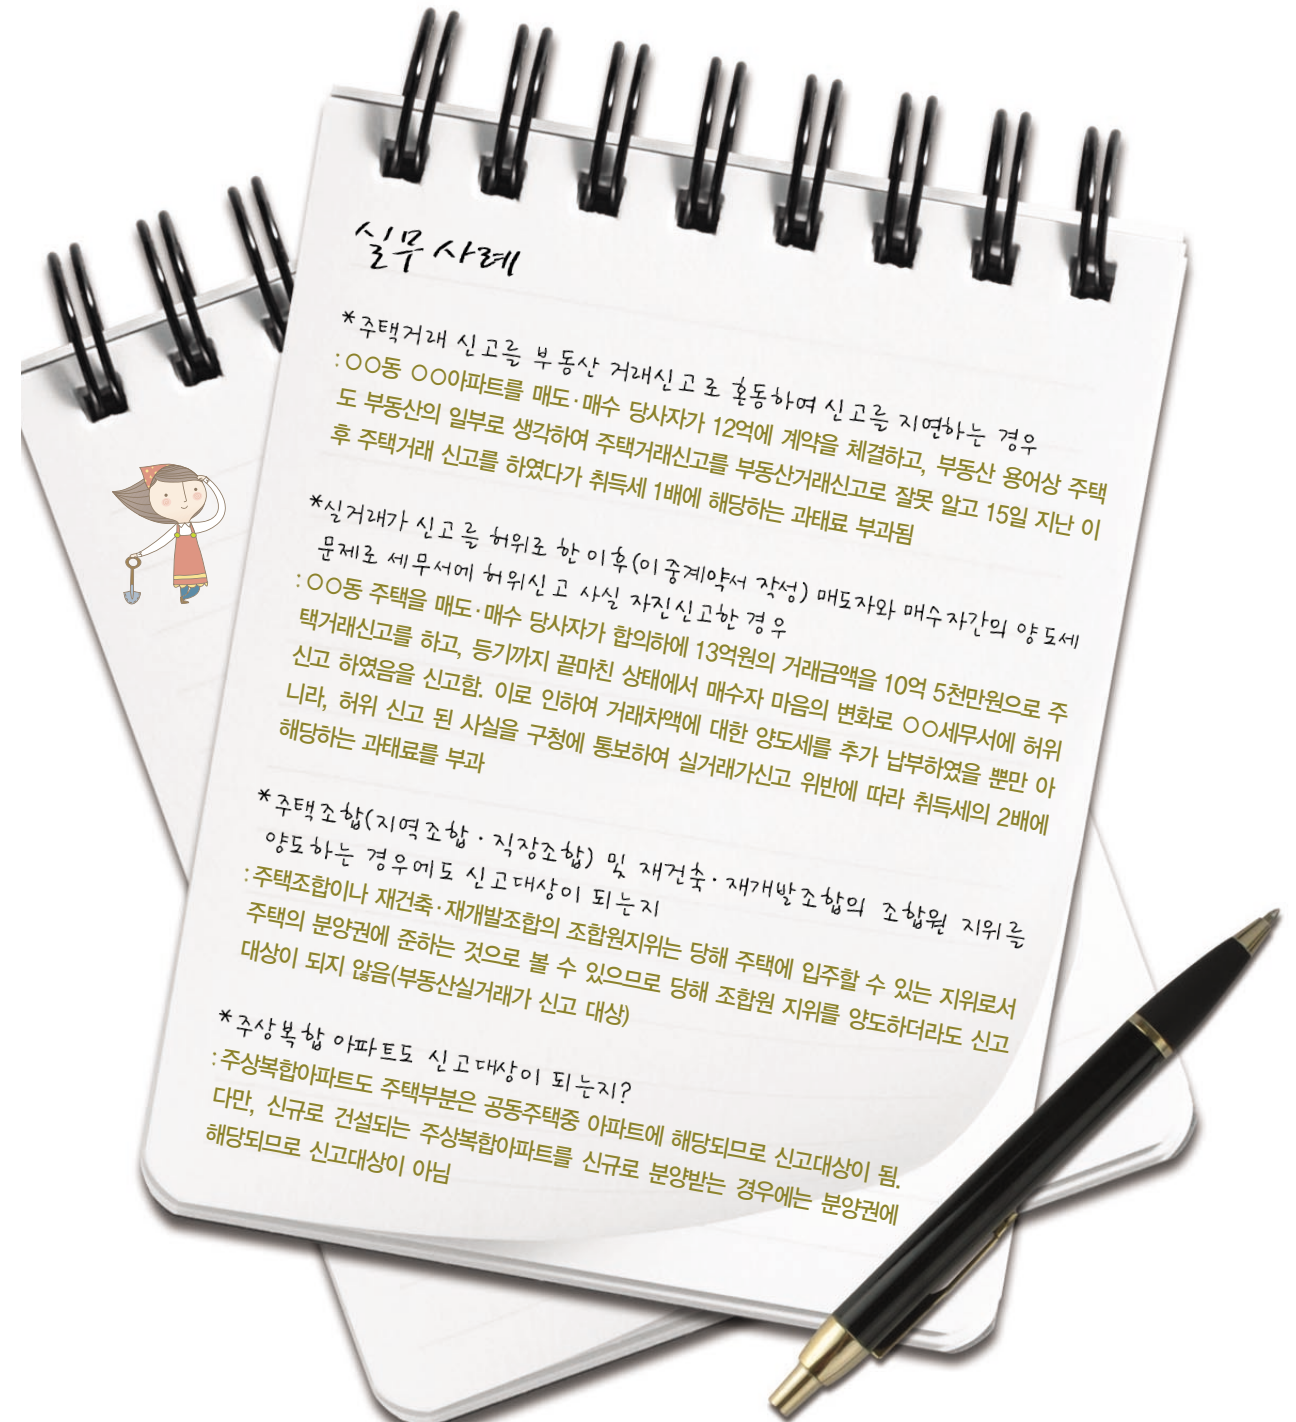 실무사례
*주택거래 신고를 부동산 거래신고로 혼동하여 신고를 지연하는 경우
: ○○동 ○○아파트를 매도·매수 당사자가 12억에 계약을 체결하고, 부동산 용어상 주택
도 부동산의 일부로 생각하여 주택거래신고를 부동산거래신고로 잘못 알고 15일 지난 이
후 주택거래 신고를 하였다가 취득세 1배에 해당하는 과태료 부과됨
*실거래가 신고를 허위로 한 이후(이중계약서 작성) 매도자와 매수자간의 양도세
문제로 세무서에 허위신고 사실 자진신고한 경우
: ○○동 주택을 매도·매수 당사자가 합의하에 13억원의 거래금액을 10억 5천만원으로 주
택거래신고를 하고, 등기까지 끝마친 상태에서 매수자 마음의 변화로 ○○세무서에 허위
신고 하였음을 신고함. 이로 인하여 거래차액에 대한 양도세를 추가 납부하였을 뿐만 아
니라, 허위 신고 된 사실을 구청에 통보하여 실거래가신고 위반에 따라 취득세의 2배에
해당하는 과태료를 부과
*주택조합(지역조합·직장조합) 및 재건축·재개발조합의 조합원 지위를
양도하는 경우에도 신고대상이 되는지
: 주택조합이나 재건축·재개발조합의 조합원지위는 당해 주택에 입주할 수 있는 지위로서
주택의 분양권에 준하는 것으로 볼 수 있으므로 당해 조합원 지위를 양도하더라도 신고
대상이 되지 않음(부동산실거래가 신고 대상)
*주상복합 아파트도 신고대상이 되는지?
: 주상복합아파트도 주택부분은 공동주택중 아파트에 해당되므로 신고대상이 됨.
다만, 신규로 건설되는 주상복합아파트를 신규로 분양받는 경우에는 분양권에
해당되므로 신고대상이 아님